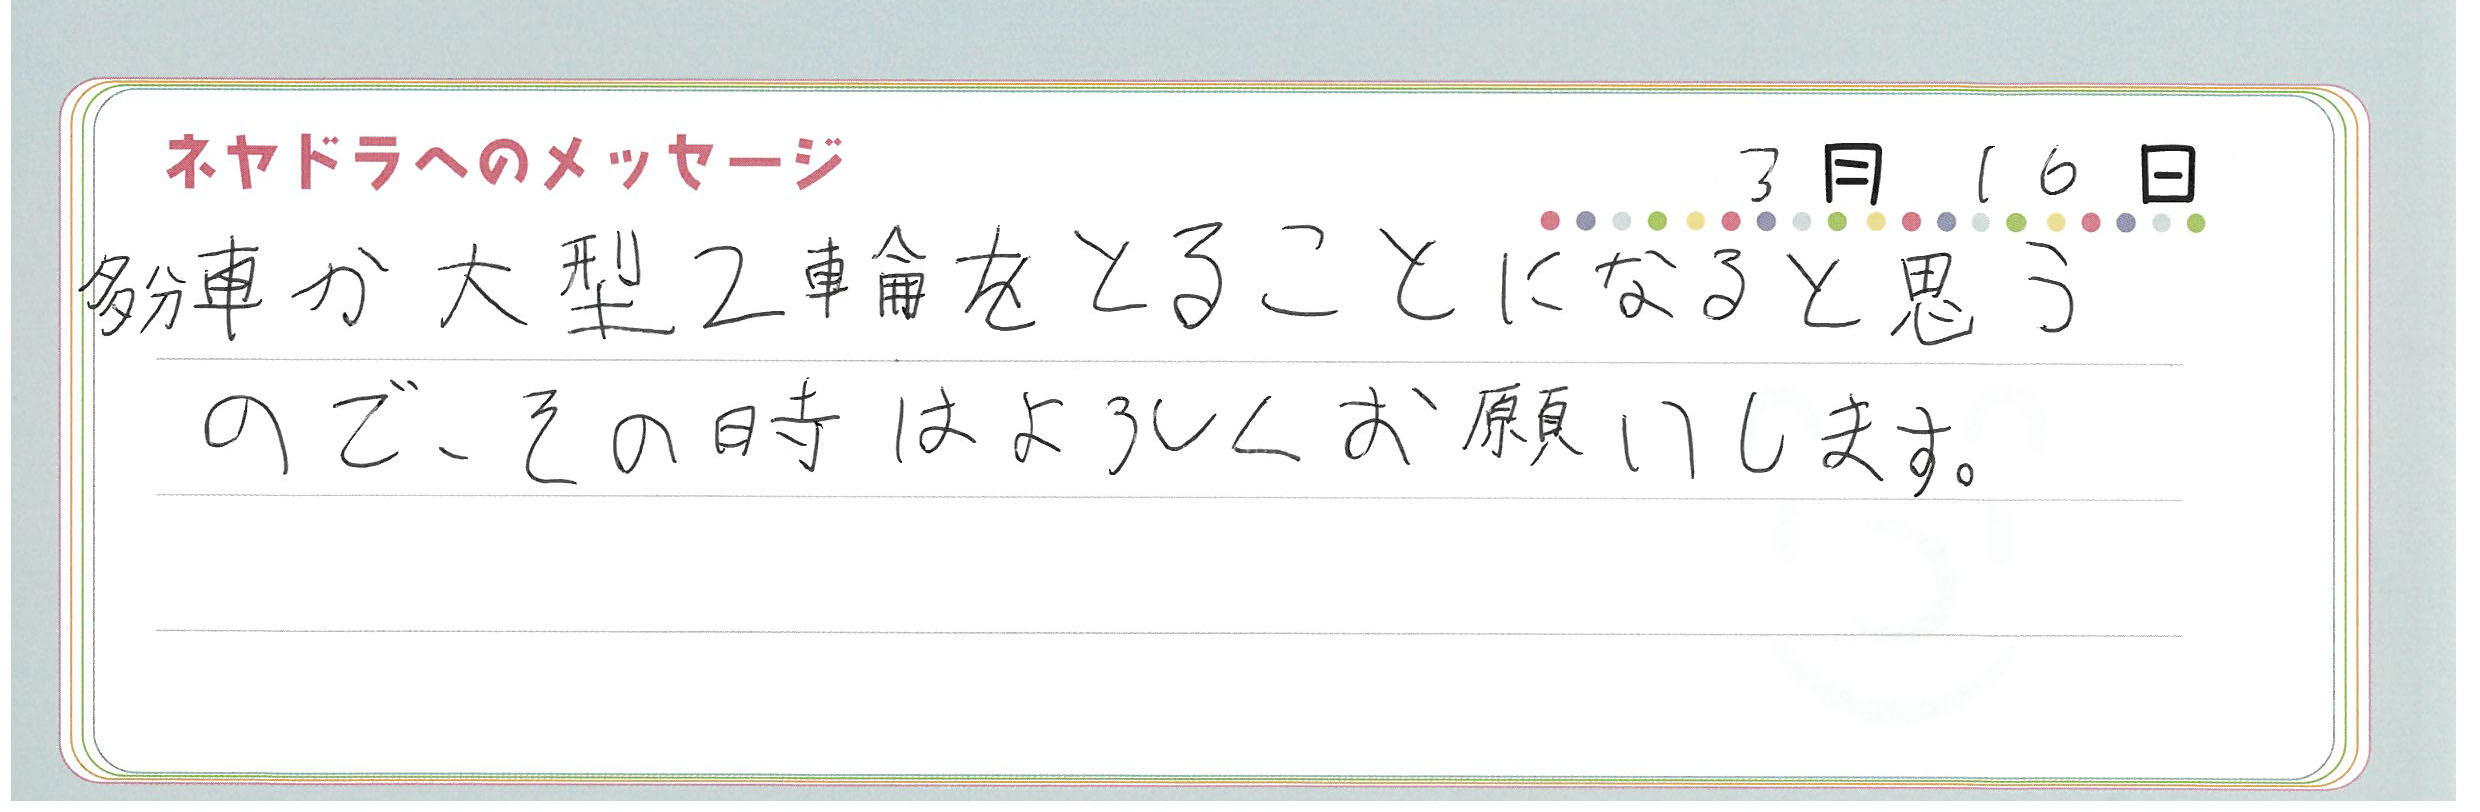 ネヤドラへのメッセージ
3月16日
多分車か大型2輪をとることになると思う
ので、その時はよろしくお願いします。